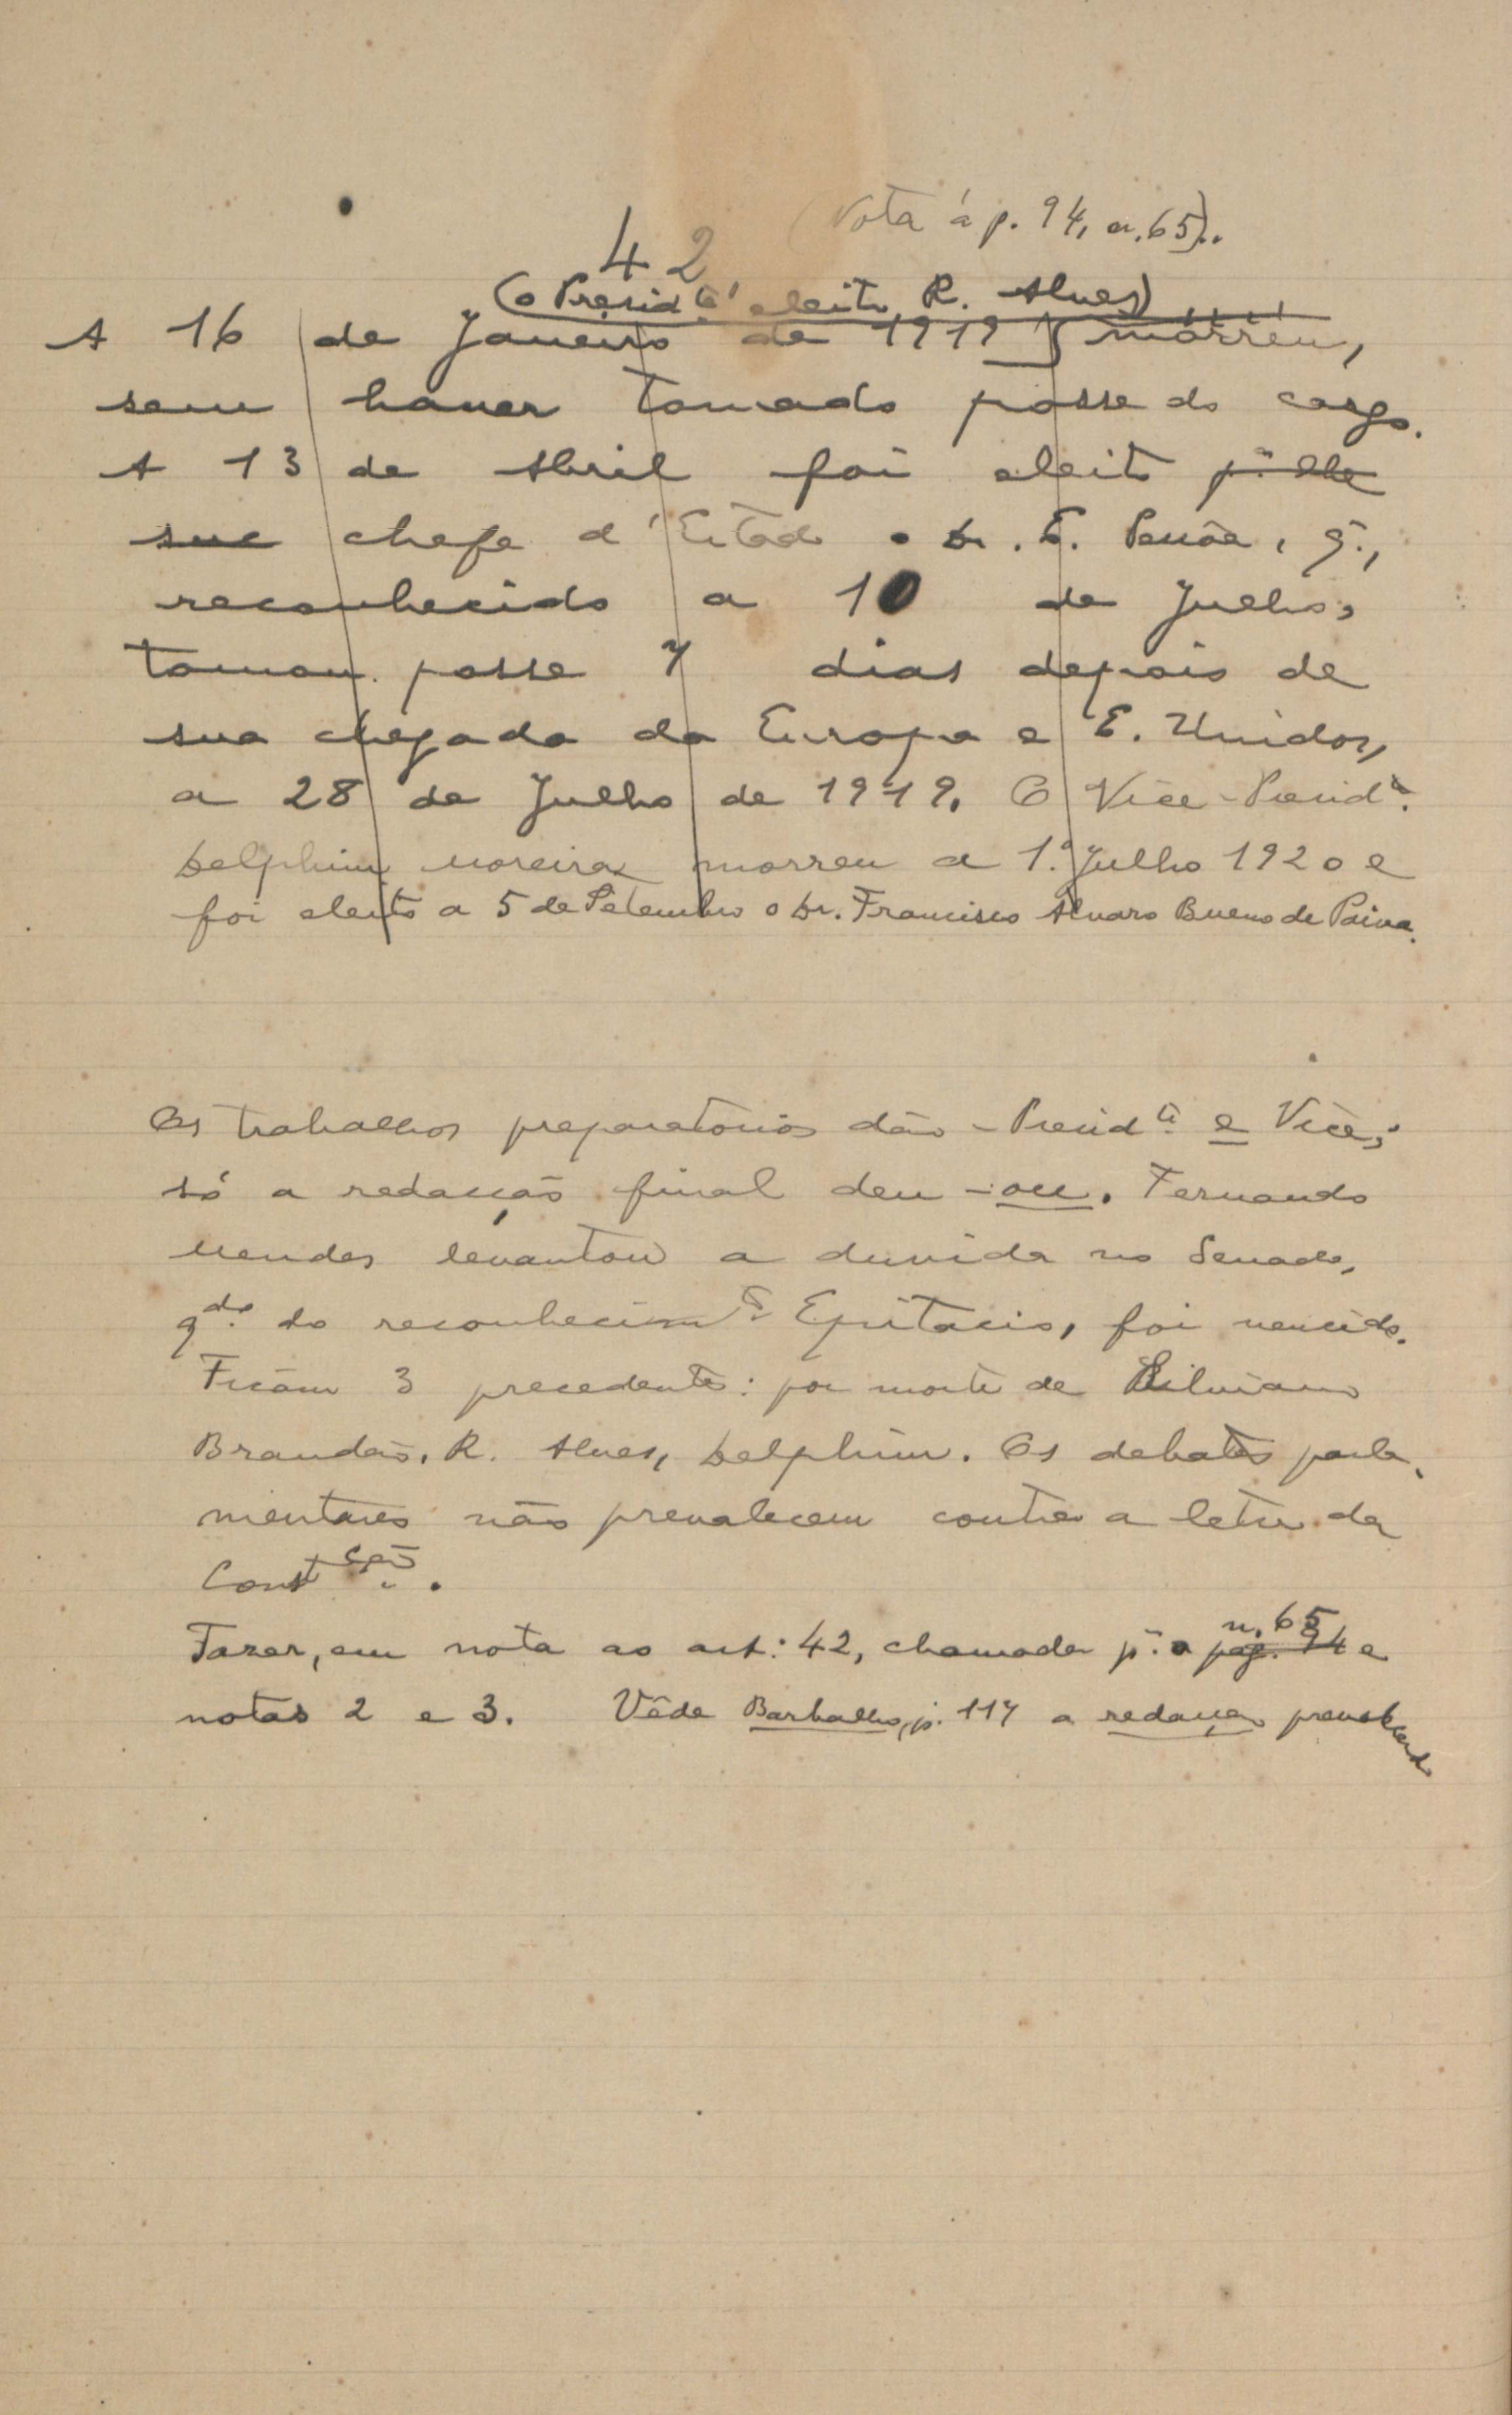 (Nota á p. 94, n. 65).
42
(o Presid.te eleito R. Alves)
A 16 de Janeiro de 1919 morreu,
sem haver tomado posse do cargo.
A 13 de Abril foi eleito
chefe d'Estado o Dr. E. Pessôa, q.,
reconhecido a 10 de Julho,
tomou posse 7 dias depois de
sua chegada da Europa e E. Unidos,
a 28 de Julho de 1919. O Vice-Presid.e
Delphim Moreira morreu a 1.º Julho 1920 e
foi eleito a 5 de Setembro o Dr. Francisco Alvaro Bueno de Paiva.
Os trabalhos preparatorios dão - Presid.te e Vice;
só a redacção final deu - ou. Fernando
Mendes levantou a duvida no Senado,
q.do do reconhecim.to Epitacio, foi vencido.
Ficam 3 precedentes: por morte de Silviano
Brandão, R. Alves, Delphim. Os debates parla-
mentares não prevalecem contra a letra da
Const.ção.
n. 65
Fazer, em nota ao art. 42, chamada p.a a pag. 94 e
notas 2 e 3. Vêde Barbalho, p. 117 a redacção prevalecend